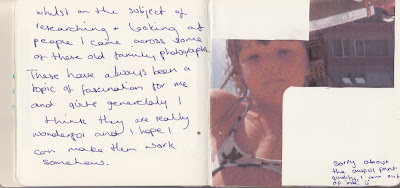 whilst on the subject of
researching + looking at
people I came across some
of these old family photographs.
These have always been a
topic of fascination for me
and quite generally I
think they are really
wonderful and I hope I
can make them work
somehow.
sorry about
the awful print
quality, I am out
of ink :(